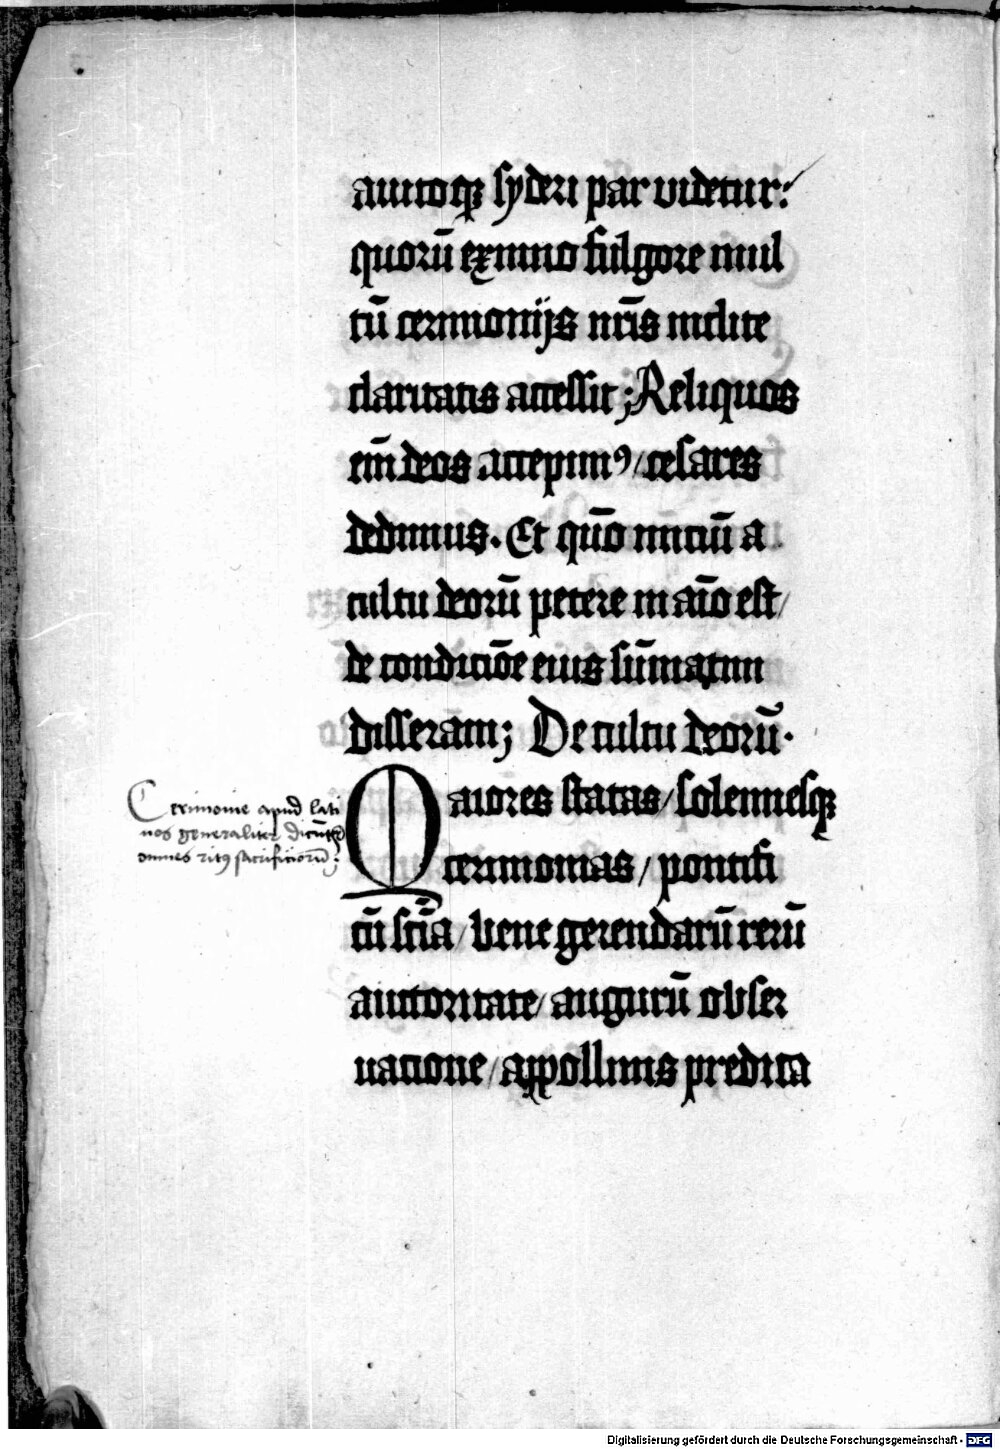 auitoqꝫ syderi par videtur:
quorū eximio fulgore mul
tū cerimonijs nr̄is inclite
claritatis accessit; Reliquos
em̄ deos accepimꝰ/ cesares
dedimus. Et qūo iniciū a
cultu deorū petere in aīo est/
de condiciōe eius sūmatim
disseram; De cultu deorū.
Maiores statas/ solennesqꝫ
cerimonias/ pontifi
cū scīa/ bene gerendarū rerū
auctoritate/ augurū obser
uatione/ appollinis predicta
Cerimonie apud lati
nos generaliter dicūtur
omnes ritꝰ sacrificiorū;
Digitalisierung gefördert durch die Deutsche Forschungsgemeinschaft - DFG